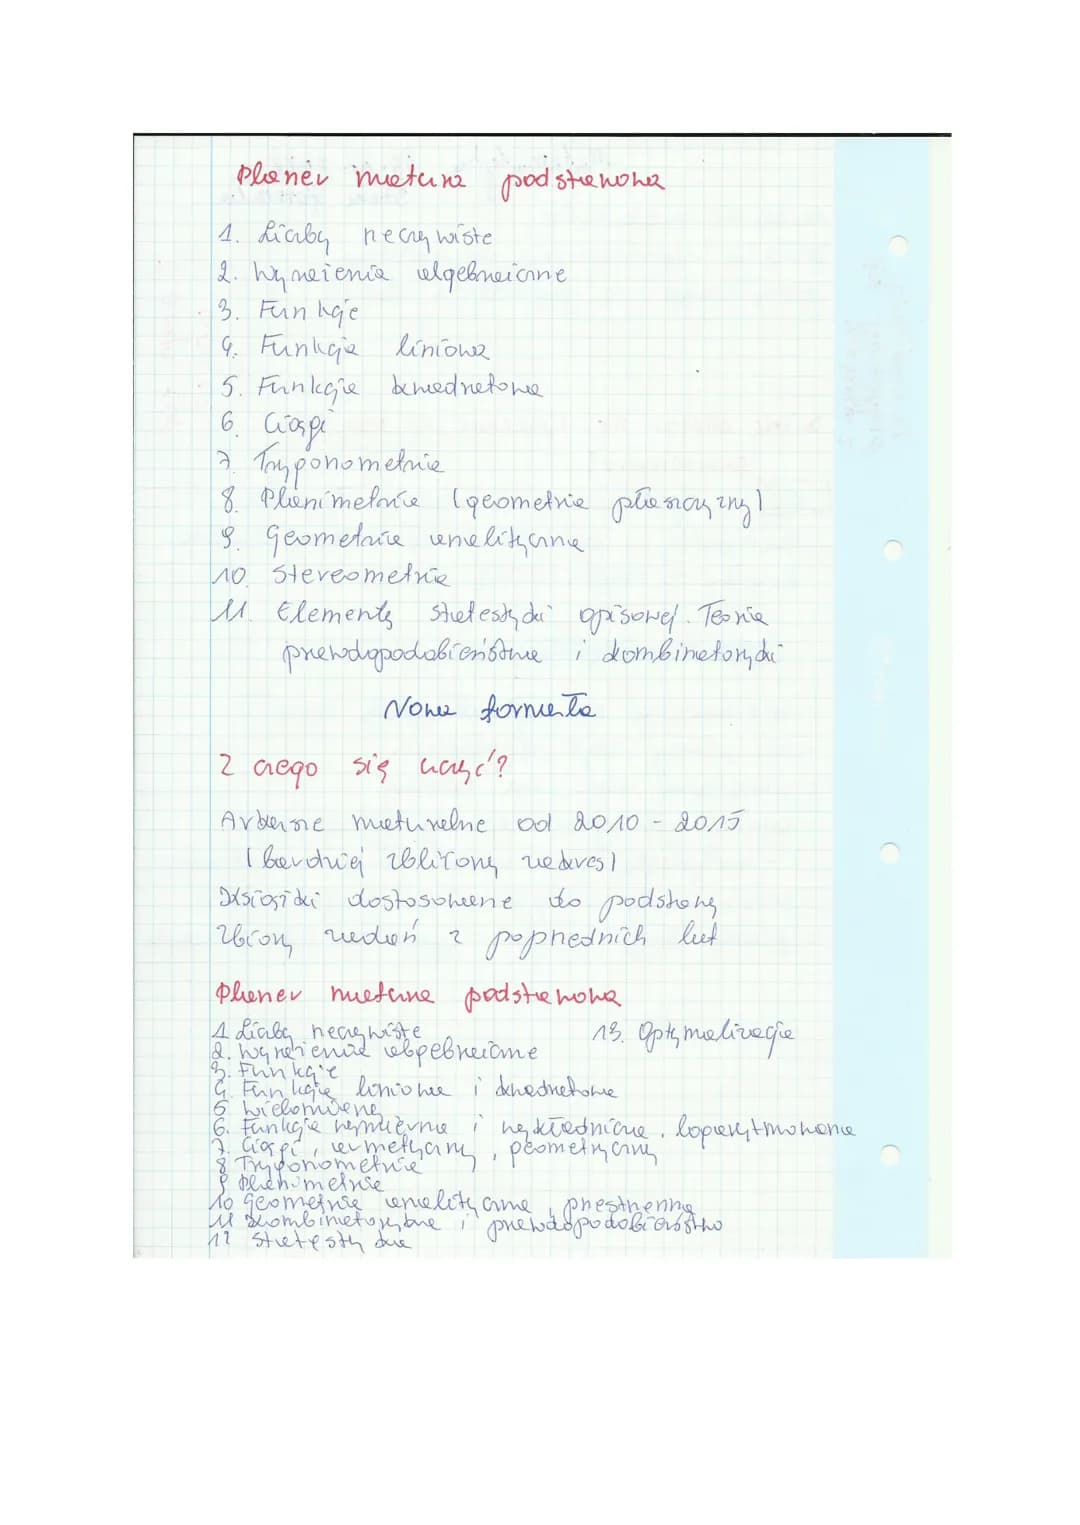 Planer matura podstawowa
1. Liczby rzeczywiste
2. Wyrażenia algebraiczne
3. Funkcje
4. Funkcja liniowa
5. Funkcja kwadratowa
6. Ciągi
7. Trygonometria
8. Planimetria (geometria płaszczyzny)
9. Geometria analityczna
10. Stereometria
11. Elementy statystyki opisowej. Teoria
prawdopodobieństwa i kombinatoryki
Nowa formuła
Z czego się uczyć?
Arkusze maturalne od 2010 - 2015
(bardziej zbliżony zakres)
Książki dostosowane do podstawy
Zbiory zadań z poprzednich lat
Planer matura podstawowa
1 Liczby rzeczywiste
13. Optymalizacja
2. Wyrażenia algebraiczne
3. Funkcje
4. Funkcja liniowa i kwadratowa
5 Wielomiany
6. Funkcja wymierna i wykładnicza, logarytmowana
7. Ciągi, armetyczny, geometryczny
8 Trygonometria
9 Planimetria
10 Geometria analityczna, przestrzenna
11 Kombinatoryka i prawdopodobieństwo
12 Statystyka